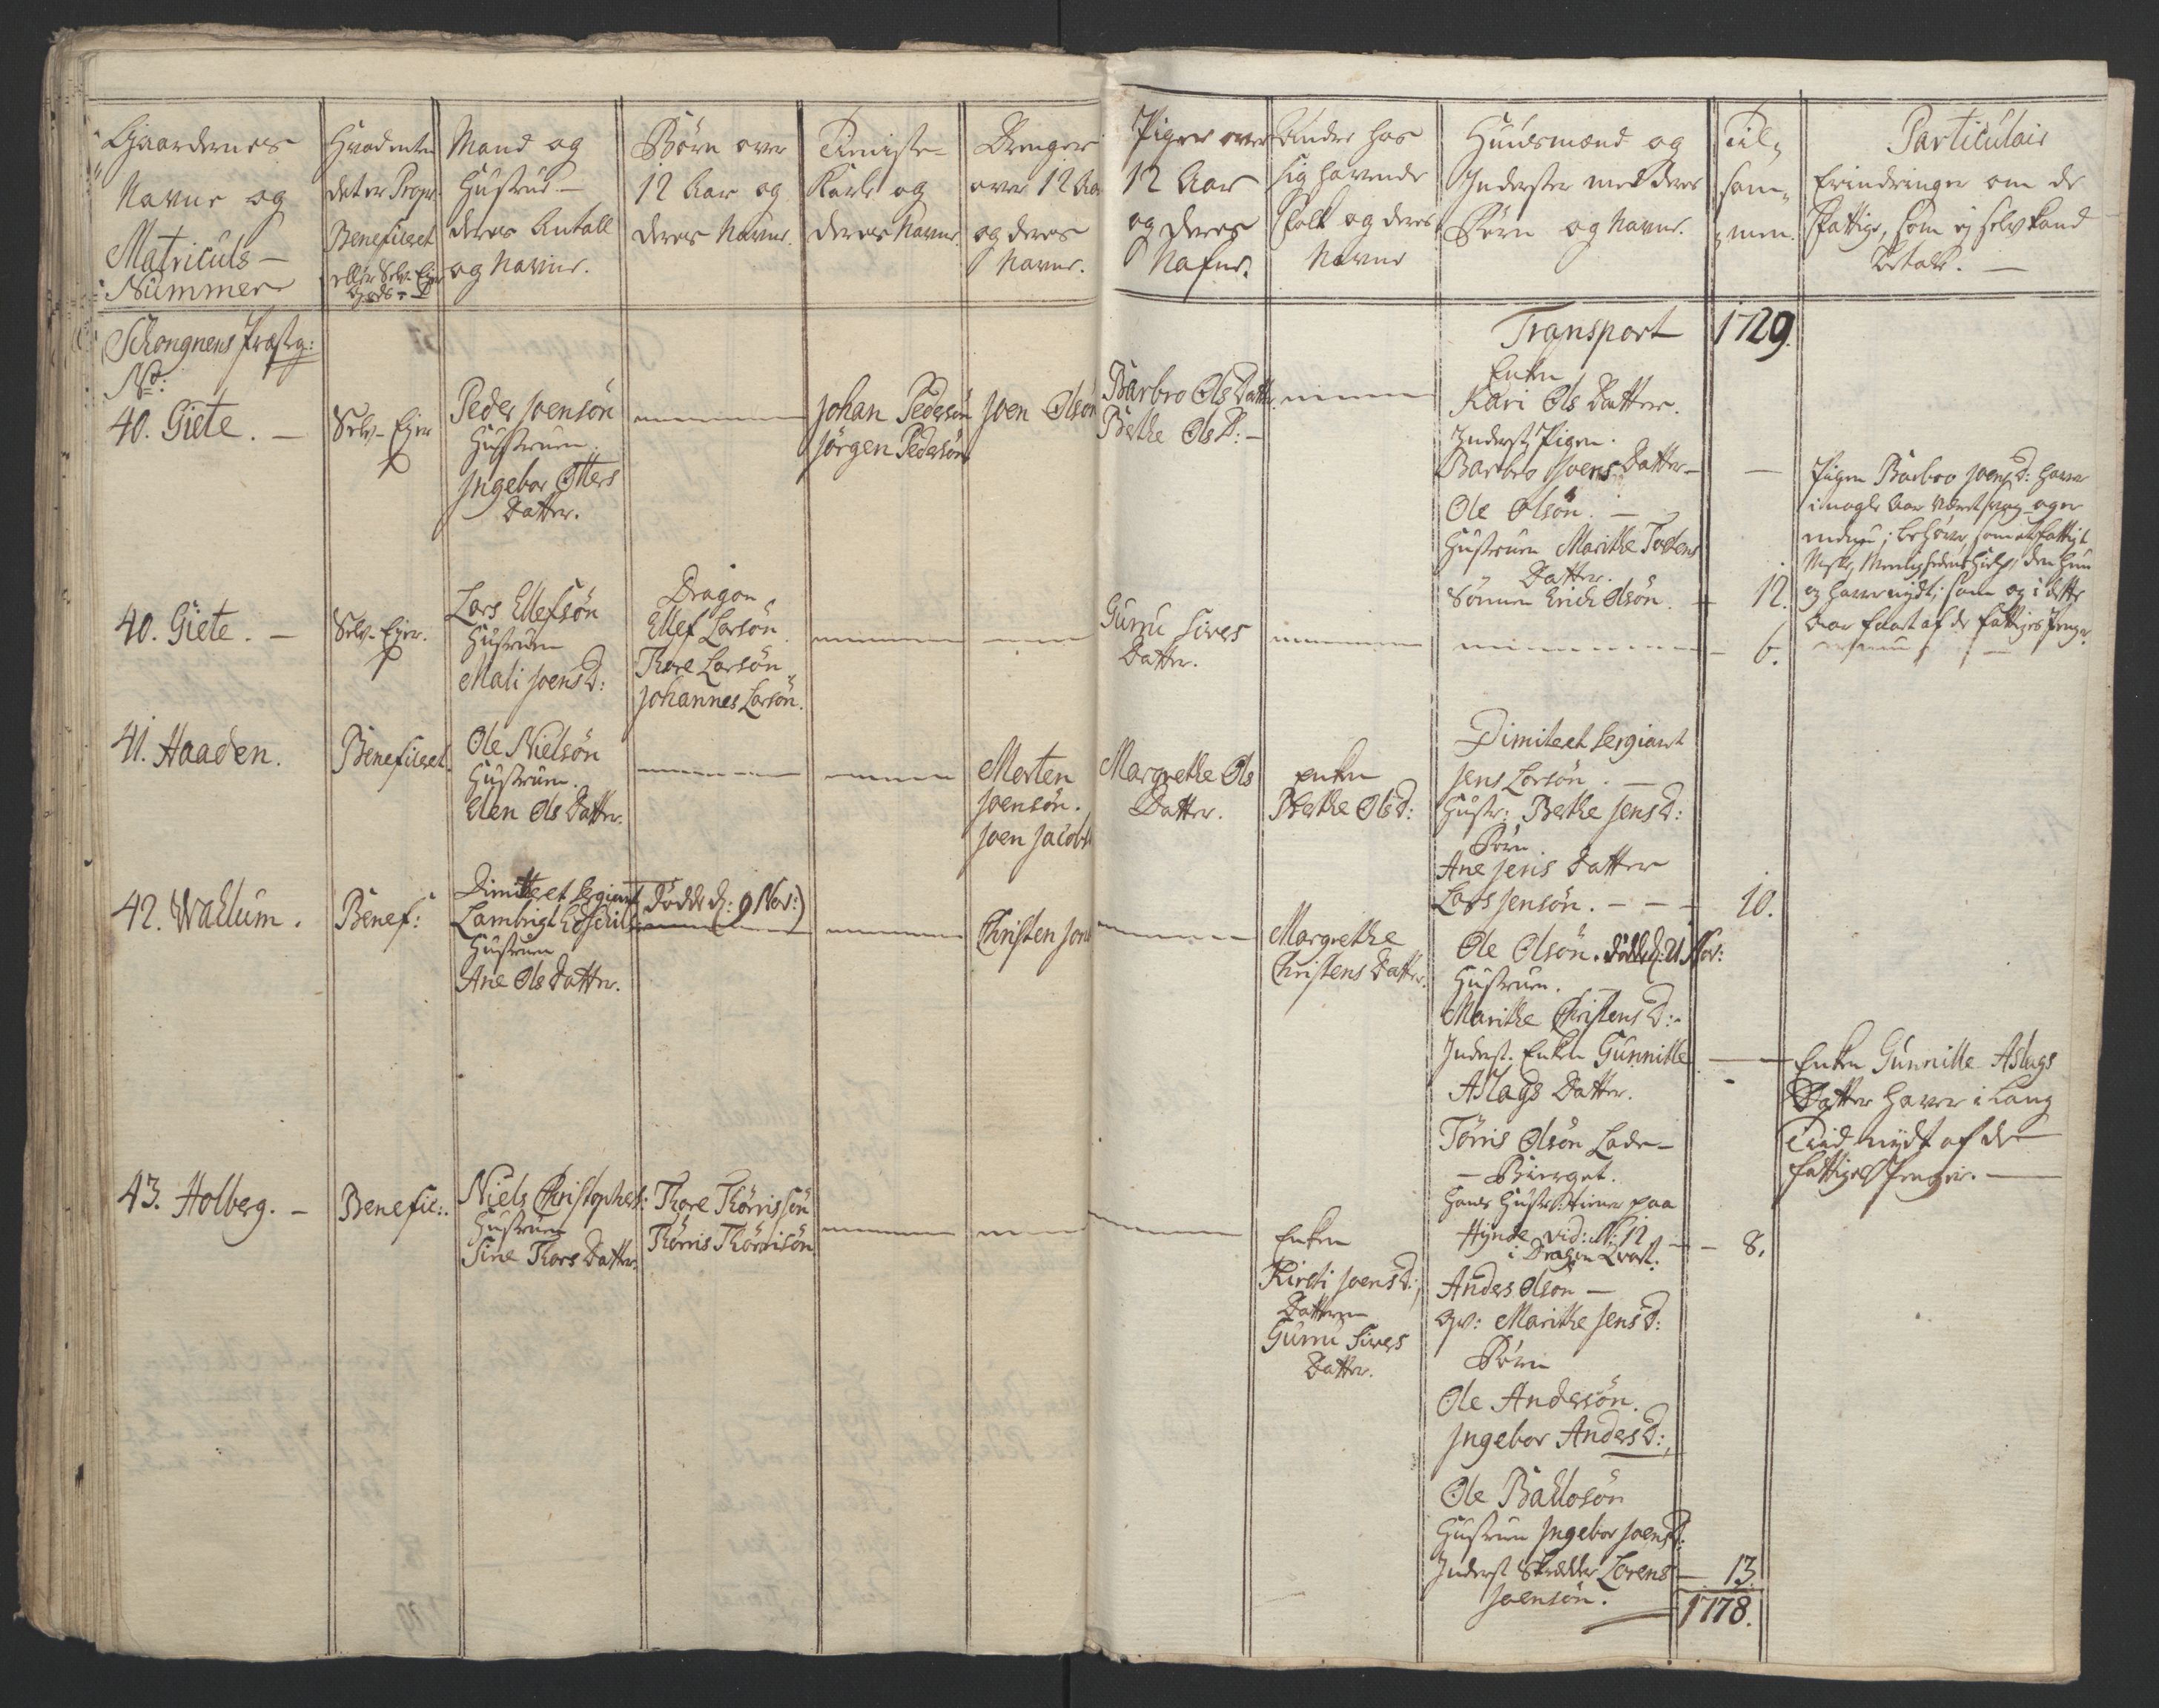 Gaardernes
Navne og
Matriculs-
Nummer
Hvad enten
det er Propr.
Beneficeret
eller Selv-Ejer
Gods
Mand og
Hustrue
deres Antall
og Navne.
Børn over
12 Aar og
deres Navne.
Tieniste-
Karle og
deres Navne
Drenger
over 12 Aar
og deres
Navne.
Piger over
12 Aar
og deres
Nafne.
Andre hos
sig havende
Folk og deres
Navne
Huusmænd og
Inderster med deres
Børn og Navne.
Til-
sam-
men.
Particulair
Erindringer om de
Fattige, som ej selv kand
betale. —
Schongnens Præstg:
No:
40. Giete. —
Selv-Ejer
Peder Joensøn
Hustruen
Ingebor Otters
Datter.
Johan Pedersøn
Jørgen Pedersøn
Joen Olsøn
Barbro Ols Datter.
Berthe Ols D: —
Transport 1729.
Enken
Kari Ols Datter.
Inderst Pigen.
Barbro Joens Datter —
Ole Olsøn. —
Hustruen Marithe Tostens
Datter.
Sønnen Erich Olsøn. — 12.
Pigen Barbro Joens D: haver
i nogle Aar været svag og er
endnu; behøver, som et fattigt
Mske, Meenighedens Hielp, den hun
og haver nydt, som og i dette
Aar faaet af de Fattiges Penge
40. Giete. —
Selv-Ejer.
Lars Ellefsøn
Hustruen
Mali Joens D:
Dragon
Ellef Larsøn.
Thore Larsøn.
Johannes Larsøn.
Gurru Sivers
Datter.
6.
41. Haaden.
Beneficeret.
Ole Nielsøn
Hustruen.
Elen Ols Datter.
Morten
Joensøn.
Joen Jacobs
Margrethe Ols
Datter.
Enken
Berthe Ols D:
Dimiteret Sergiant
Jens Larsøn. —
Hustr: Berthe Jens D:
Børn
Ane Jens Datter
Lars Jensøn. — — — 10.
42. Wallum.
Benef:
Dimitteret Sergiant
Lambrigt
Hustruen
Ane Ols Datter.
Døde d: 9 Nov:)
Christen
Margrethe
Christens Datter.
Ole Olsøn. døde d: 21 Nov:
Hustruen.
Marithe Christens D:
Inderst. Enken Gunnille
Aslags Datter.
Tørris Olsøn Lade-
— Bierget.
hans Hustr. tiener paa
Hynde vid: No: 12
i Dragon Qvart. — — 8.
Enken Gunnille Aslags
Datter haver i lang
Tiid nydt af de
Fattiges Penger. —
43. Holberg. —
Benefic:
Niels Christophers:
Hustruen
Sine Thors Datter.
Thore Thørrissøn
Thørris Thørrisøn
Enken
Kirsti Joens D:,
Datteren
Gurru Sivers
Datter.
Anders Olsøn —
Qv: Marithe Jens D:
Børn
Ole Andersøn.
Ingebor Anders D:,
Ole Ballosøn
Hustruen Ingebor Joens D:
Inderst Skrædder Lorens — 13.
Joensøn.
1778.